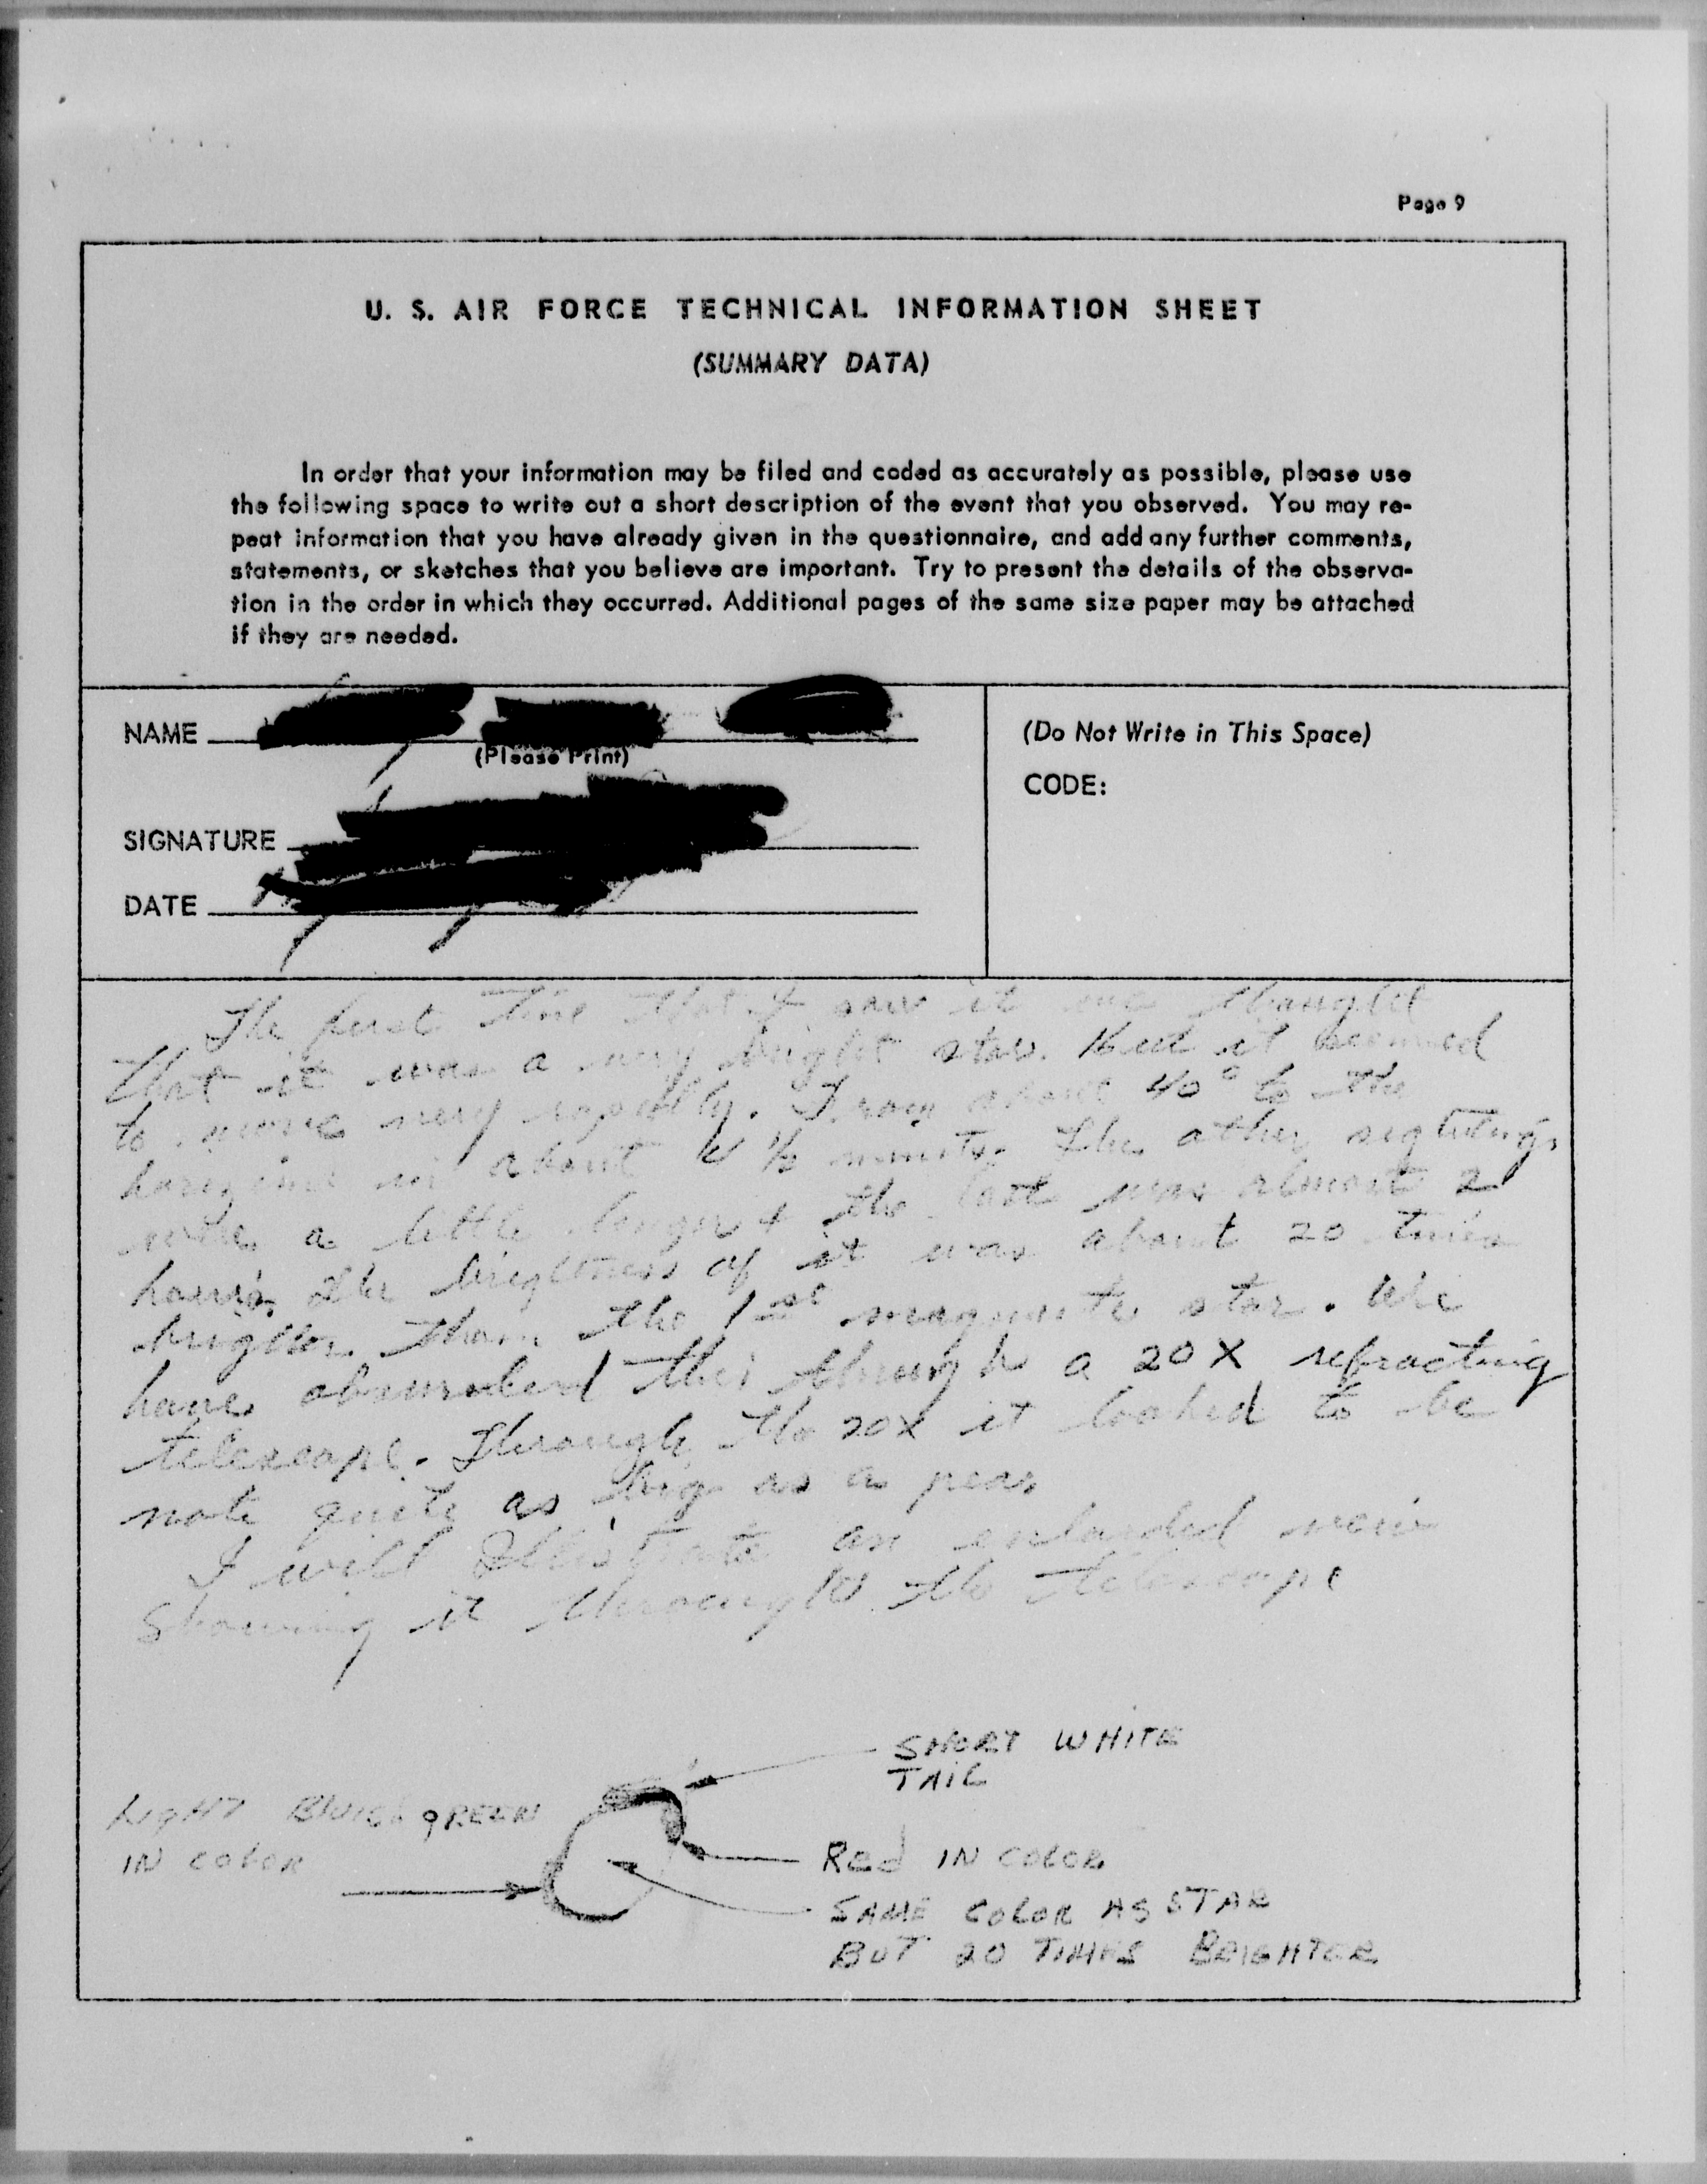 Page 9
U. S. AIR FORCE TECHNICAL INFORMATION SHEET
(SUMMARY DATA)
In order that your information may be filed and coded as accurately as possible, please use
the following space to write out a short description of the event that you observed. You may re-
peat information that you have already given in the questionnaire, and add any further comments,
statements, or sketches that you believe are important. Try to present the details of the observa-
tion in the order in which they occurred. Additional pages of the same size paper may be attached
if they are needed.
NAME
(Please Print)
SIGNATURE
DATE
(Do Not Write in This Space)
CODE:
The first time that I saw it we thought
that it was a very bright star. But it seemed
to move very rapidly. From about 40° to the
in about 1/2 The other sightings
were a little longer & the last was almost 2
The brightness of it was about 20 times
brighter than the 1st star. We
have this through a 20X refracting
telescope. Through the 20X it looked to be
note quite as big as a
I will an view
Showing it through the telescope
SHORT WHITE
TAIL
LIGHT GREEN
IN COLOR
Red IN COLOR
SAME COLOR AS STAR
BUT 20 TIMES BRIGHTER